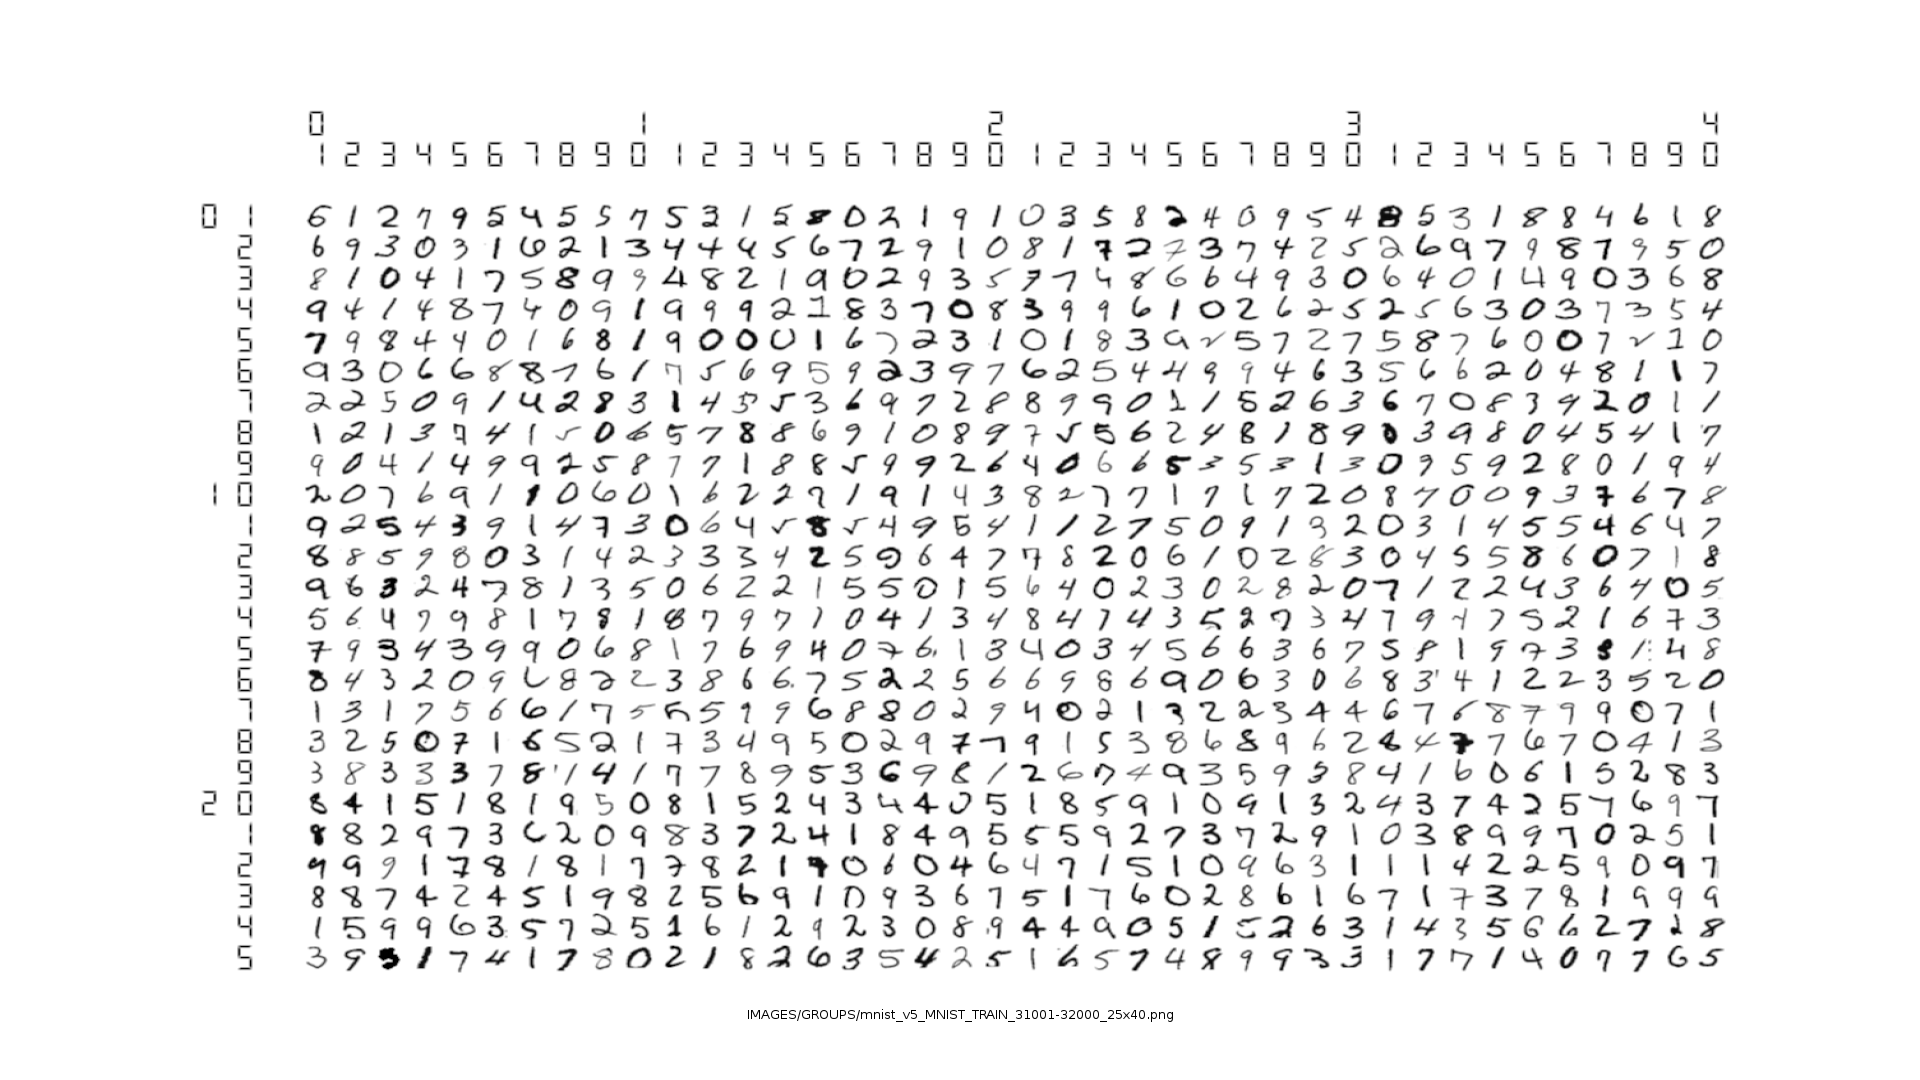 0 1 2 3 4
1 2 3 4 5 6 7 8 9 0 1 2 3 4 5 6 7 8 9 0 1 2 3 4 5 6 7 8 9 0 1 2 3 4 5 6 7 8 9 0
0 1 6 1 2 7 9 5 4 5 5 7 5 3 1 5 8 0 2 1 9 1 0 3 5 8 2 4 0 9 5 4 8 5 3 1 8 8 4 6 1 8
2 6 9 3 0 3 1 6 2 1 3 4 4 4 5 6 7 2 9 1 0 8 1 7 2 7 3 7 4 2 5 2 6 9 7 9 8 7 9 5 0
3 8 1 0 4 1 7 5 8 9 9 4 8 2 1 9 0 2 9 3 5 7 7 4 8 6 6 4 9 3 0 6 4 0 1 4 9 0 3 6 8
4 9 4 1 4 8 7 4 0 9 1 9 9 9 2 1 8 3 7 0 8 3 9 9 6 1 0 2 6 2 5 2 5 6 3 0 3 7 3 5 4
5 7 9 8 4 4 0 1 6 8 1 9 0 0 0 1 6 7 2 3 1 0 1 8 3 9 2 5 7 2 7 5 8 7 6 0 0 7 2 1 0
6 9 3 0 6 6 8 8 7 6 1 7 5 6 9 5 9 2 3 9 7 6 2 5 4 4 9 9 4 6 3 5 6 6 2 0 4 8 1 1 7
7 2 2 5 0 9 1 4 2 8 3 1 4 5 5 3 6 9 7 2 8 8 9 9 0 1 1 5 2 6 3 6 7 0 8 3 9 2 0 1 1
8 1 2 1 3 7 4 1 5 0 6 5 7 8 8 6 9 1 0 8 9 7 5 5 6 2 4 8 1 8 9 0 3 9 8 0 4 5 4 1 7
9 9 0 4 1 4 9 9 2 5 8 7 7 1 8 8 5 9 9 2 6 4 0 6 6 5 3 5 3 1 3 0 9 5 9 2 8 0 1 9 4
1 0 2 0 7 6 9 1 1 0 6 0 1 6 2 2 7 1 9 1 4 3 8 2 7 7 1 7 1 7 2 0 8 7 0 0 9 3 7 6 7 8
1 9 2 5 4 3 9 1 4 7 3 0 6 4 5 8 5 4 9 5 4 1 1 2 7 5 0 9 1 3 2 0 3 1 4 5 5 4 6 4 7
2 8 8 5 9 8 0 3 1 4 2 3 3 3 4 2 5 9 6 4 7 7 8 2 0 6 1 0 2 8 3 0 4 5 5 8 6 0 7 1 8
3 9 6 3 2 4 7 8 1 3 5 0 6 2 2 1 5 5 0 1 5 6 4 0 2 3 0 2 8 2 0 7 1 2 2 4 3 6 4 0 5
4 5 6 4 7 9 8 1 7 8 1 8 7 9 7 1 0 4 1 3 4 8 4 7 4 3 5 2 7 3 4 7 9 4 7 5 2 1 6 7 3
5 7 9 3 4 3 9 9 0 6 8 1 7 6 9 4 0 7 6 1 3 4 0 3 4 5 6 6 3 6 7 5 8 1 9 7 3 8 1 4 8
6 8 4 3 2 0 9 6 8 2 2 3 8 6 6 7 5 2 2 5 6 6 9 8 6 9 0 6 3 0 6 8 3 4 1 2 2 3 5 2 0
7 1 3 1 7 5 6 6 1 7 5 5 5 9 9 6 8 8 0 2 9 4 0 2 1 3 2 2 3 4 4 6 7 6 8 7 9 9 0 7 1
8 3 2 5 0 7 1 6 5 2 1 7 3 4 9 5 0 2 9 7 7 9 1 5 3 8 6 8 9 6 2 8 4 7 7 6 7 0 4 1 3
9 3 8 3 3 3 7 8 1 4 1 7 7 8 9 5 3 6 9 8 1 2 6 7 4 9 3 5 9 3 8 4 1 6 0 6 1 5 2 8 3
2 0 8 4 1 5 1 8 1 9 5 0 8 1 5 2 4 3 4 4 0 5 1 8 5 9 1 0 9 1 3 2 4 3 7 4 2 5 7 6 9 7
1 8 8 2 9 7 3 6 2 0 9 8 3 7 2 4 1 8 4 9 5 5 5 9 2 7 3 7 2 9 1 0 3 8 9 9 7 0 2 5 1
2 9 9 9 1 7 8 1 8 1 7 7 8 2 1 9 0 6 0 4 6 4 7 1 5 1 0 9 6 3 1 1 1 4 2 2 5 9 0 9 7
3 8 8 7 4 2 4 5 1 9 8 2 5 6 9 1 0 9 3 6 7 5 1 7 6 0 2 8 6 1 6 7 1 7 3 7 8 1 9 9 9
4 1 5 9 9 6 3 5 7 2 5 1 6 1 2 9 2 3 0 8 9 4 4 9 0 5 1 5 2 6 3 1 4 3 5 6 6 2 7 2 8
5 3 9 5 1 7 4 1 7 8 0 2 1 8 2 6 3 5 4 2 5 1 6 5 7 4 8 9 9 3 3 1 7 7 1 4 0 7 7 6 5
IMAGES/GROUPS/mnist_v5_MNIST_TRAIN_31001-32000_25x40.png